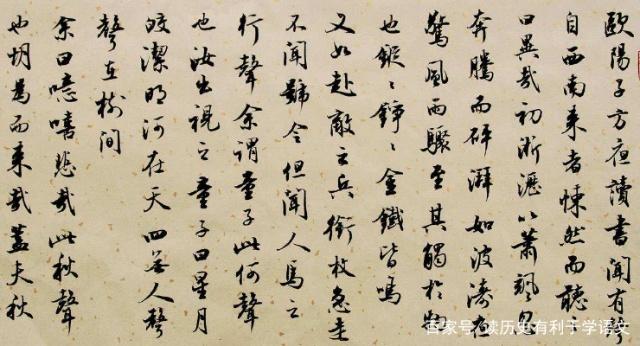 歐陽子方夜讀書聞有聲
自西南來者悚然而聽之
曰異哉初淅瀝以蕭颯忽
奔騰而砰湃如波濤夜
驚風雨驟至其觸於物
也鏦々錚々金鐵皆鳴
又如赴敵之兵銜枚急走
不聞號令但聞人馬之
行聲余謂童子此何聲
也汝出視之童子曰星月
皎潔明河在天四無人聲
聲在樹間
余曰噫嘻悲哉此秋聲
也胡為而來哉蓋夫秋
百家号/读历史有利于学语文